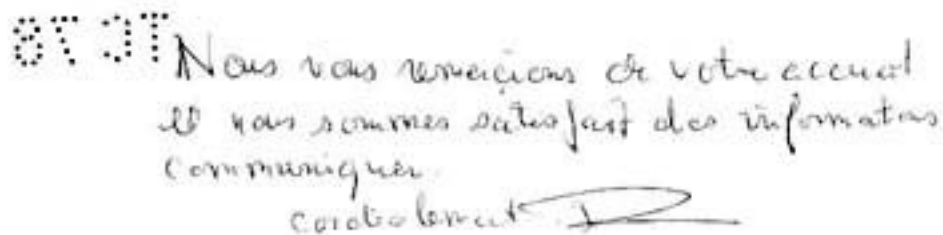 Nous vous remercions de votre accueil
et nous sommes satisfait des informations
communiquer.
cordialement